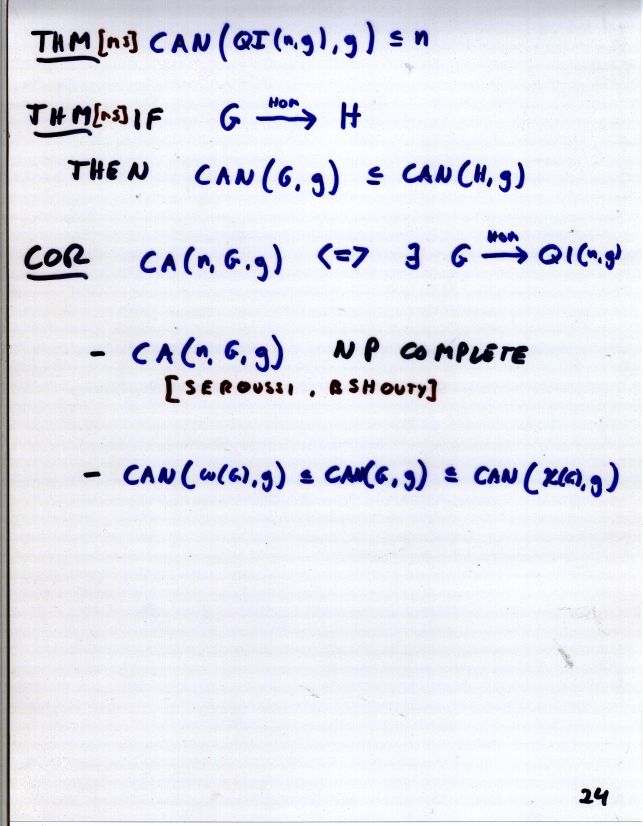 THM [ns] CAN(QI(n,g),g) ≤ n
THM [ns] IF G —Hom→ H
THEN CAN(G,g) ≤ CAN(H,g)
COR CA(n,G,g) <=> ∃ G —Hom→ QI(n,g)
- CA(n,G,g) NP COMPLETE
[SEROUSSI, BSHOUTY]
- CAN(ω(G),g) ≤ CAN(G,g) ≤ CAN(χ(G),g)
24